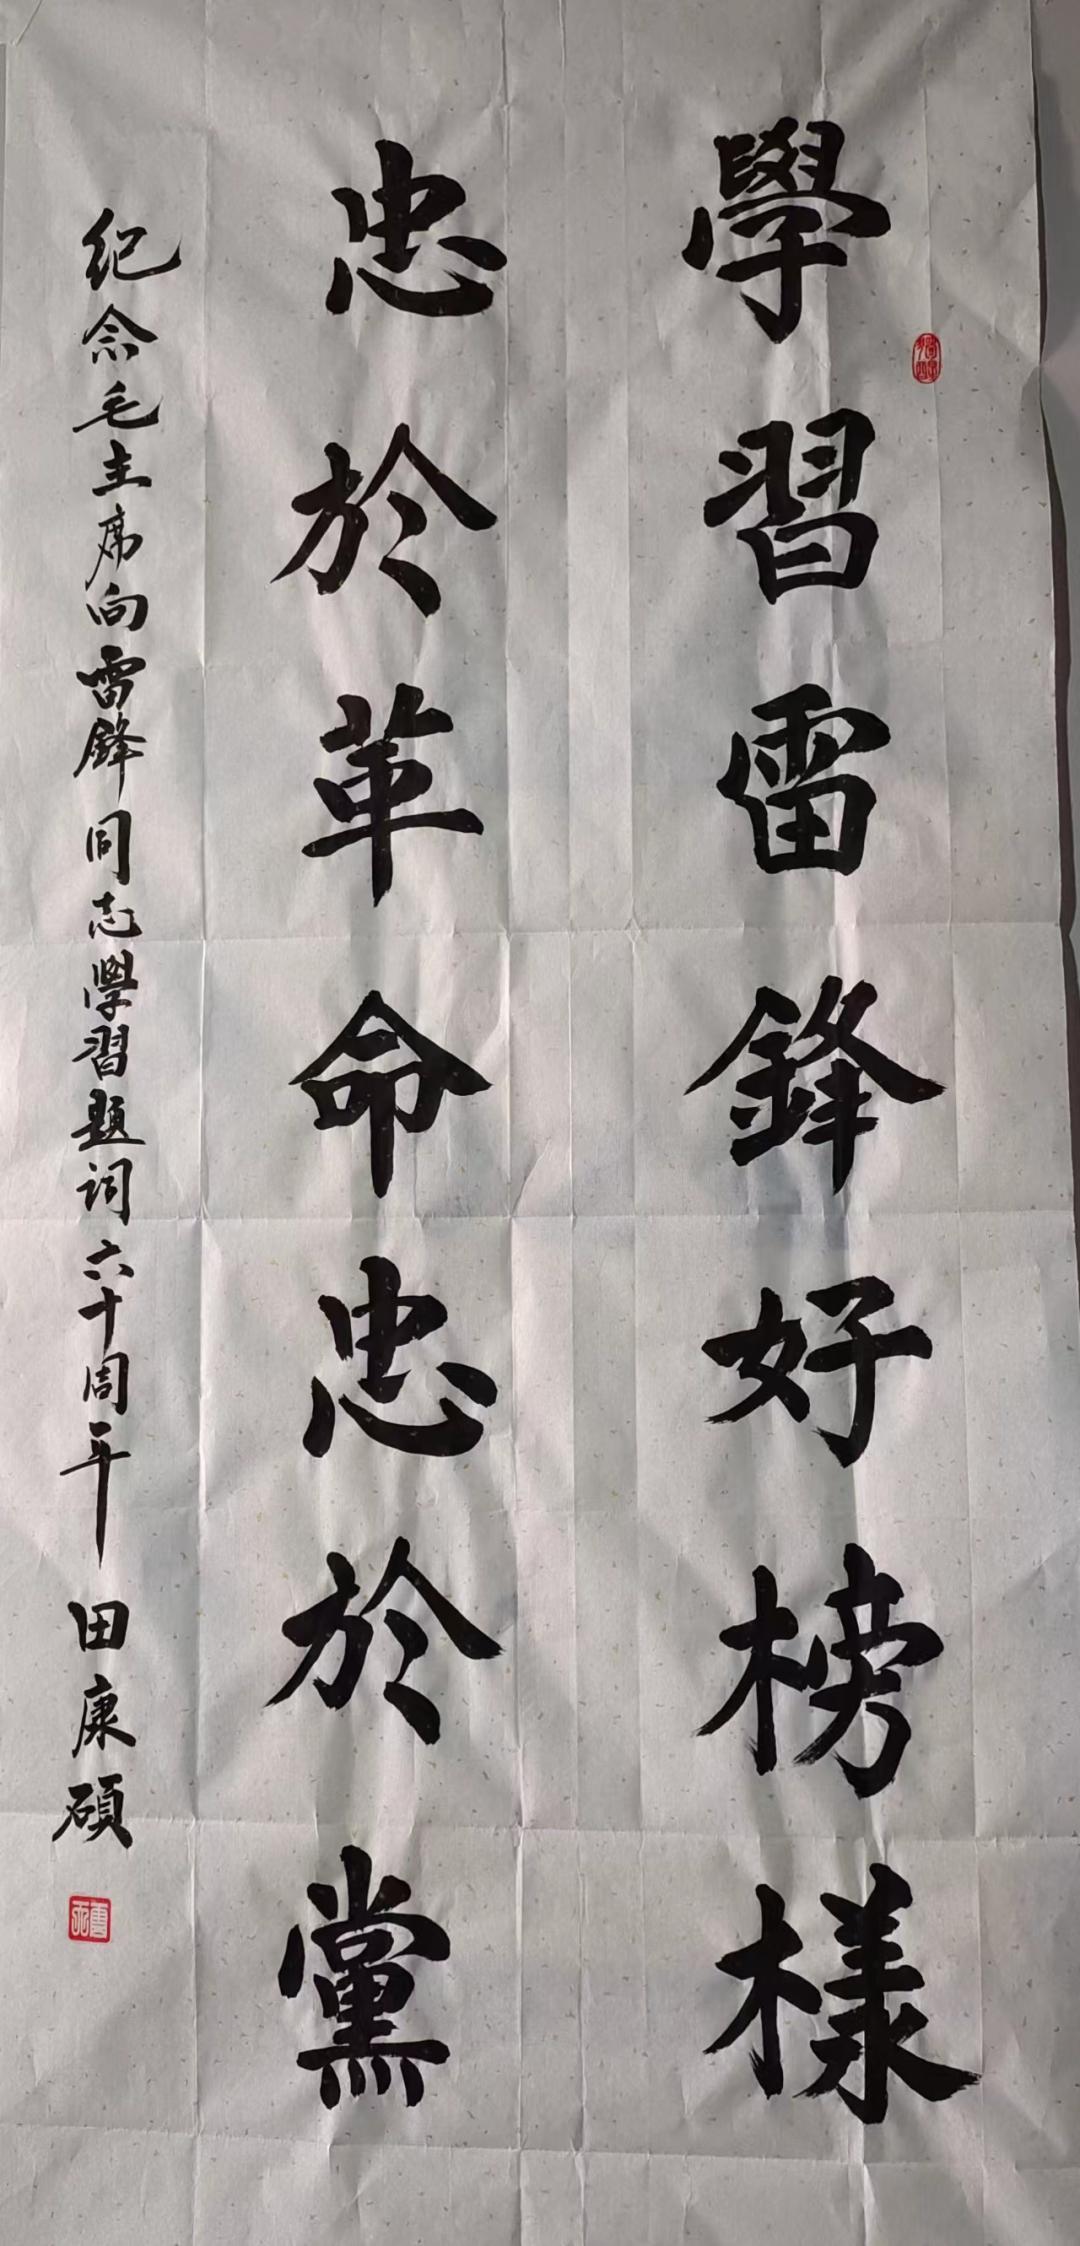 學習雷鋒好榜樣
忠於革命忠於黨
纪念毛主席向雷鋒同志學習題词六十周年 田康碩